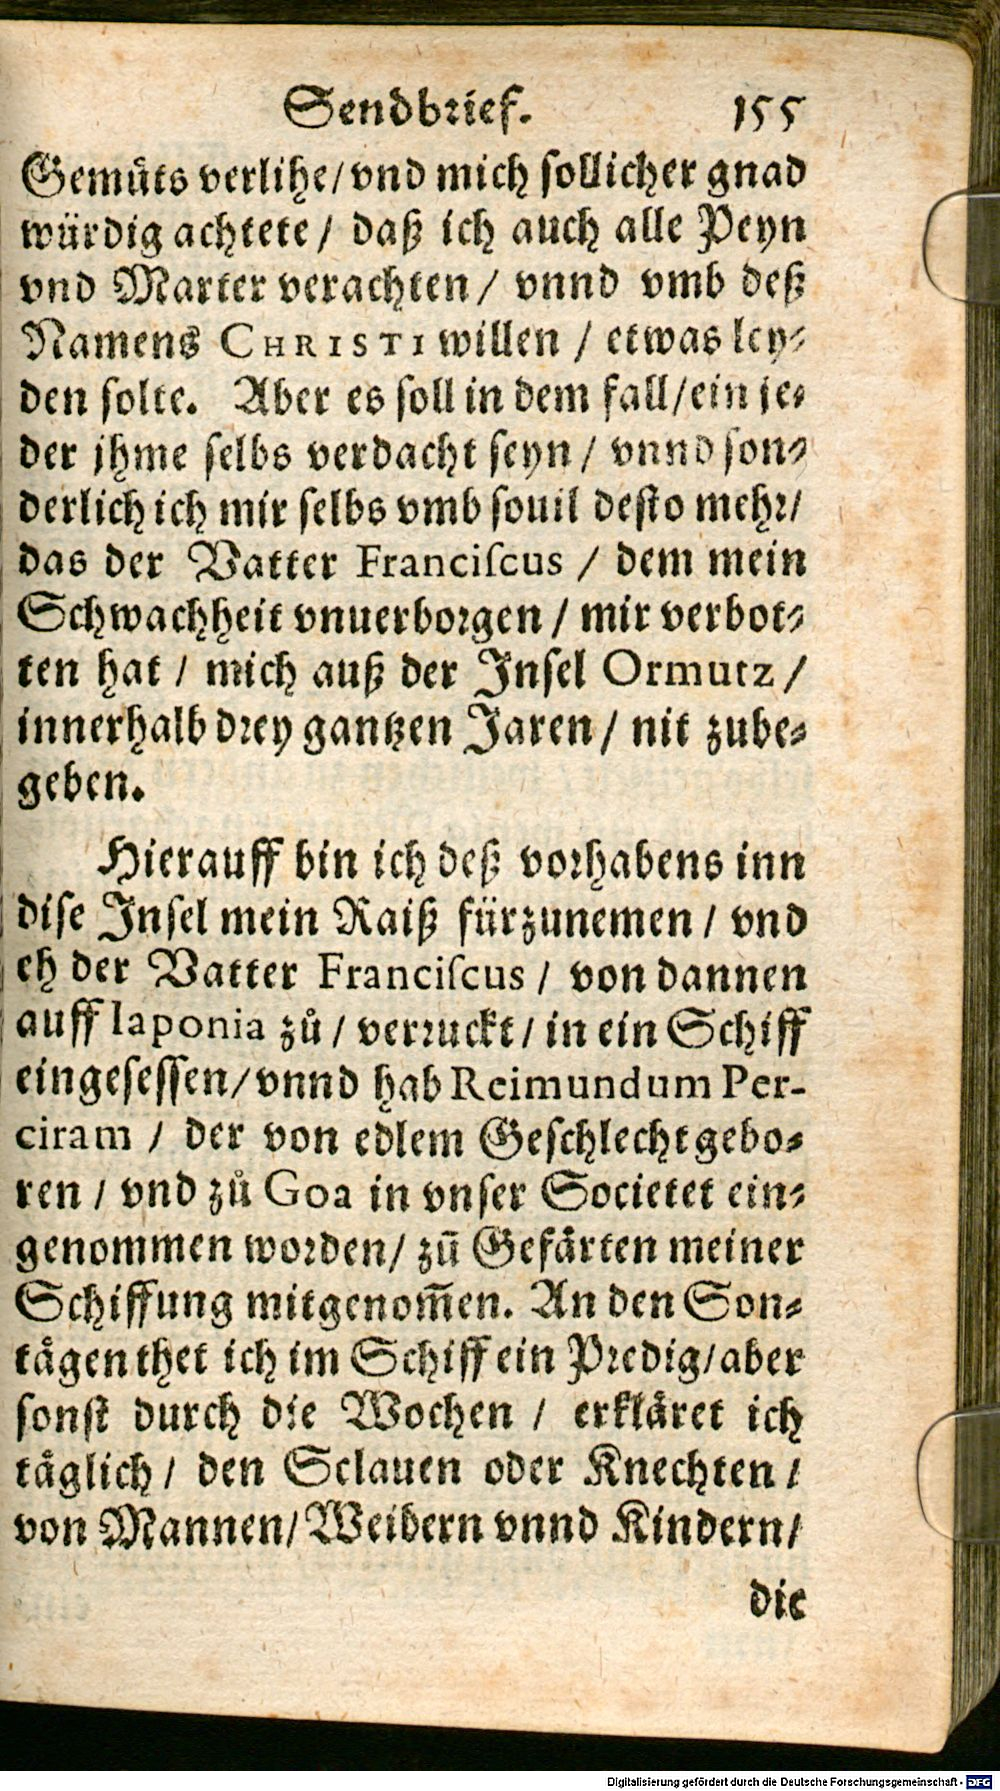 Sendbrief. 155
Gemuͤts verlihe/ vnd mich sollicher gnad
würdig achtete / daß ich auch alle Peyn
vnd Marter verachten / vnnd vmb deß
Namens CHRISTI willen / etwas ley⸗
den solte. Aber es soll in dem fall/ ein je⸗
der jhme selbs verdacht seyn / vnnd son⸗
derlich ich mir selbs vmb souil desto mehr/
das der Vatter Franciſcus / dem mein
Schwachheit vnuerborgen / mir verbot⸗
ten hat / mich auß der Insel Ormutz /
innerhalb drey gantzen Jaren / nit zube⸗
geben.
Hierauff bin ich deß vorhabens inn
dise Insel mein Raiß fürzunemen / vnd
eh der Vatter Franciſcus / von dannen
auff Iaponia zů / verruckt / in ein Schiff
eingesessen/ vnnd hab Reimundum Per-
ciram / der von edlem Geschlecht gebo⸗
ren / vnd zů Goa in vnser Societet ein⸗
genommen worden/ zū Gefärten meiner
Schiffung mitgenom̄en. An den Son⸗
taͤgen thet ich im Schiff ein Predig/ aber
sonst durch die Wochen / erkläret ich
taͤglich / den Sclauen oder Knechten /
von Mannen/ Weibern vnnd Kindern/
die
Digitalisierung gefördert durch die Deutsche Forschungsgemeinschaft - DFG